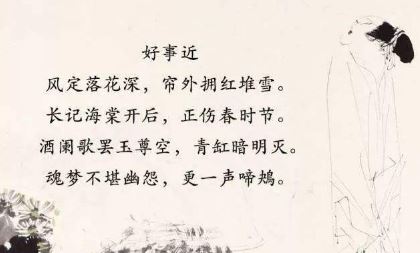 好事近
风定落花深，帘外拥红堆雪。
长记海棠开后，正伤春时节。
酒阑歌罢玉尊空，青缸暗明灭。
魂梦不堪幽怨，更一声啼鴂。